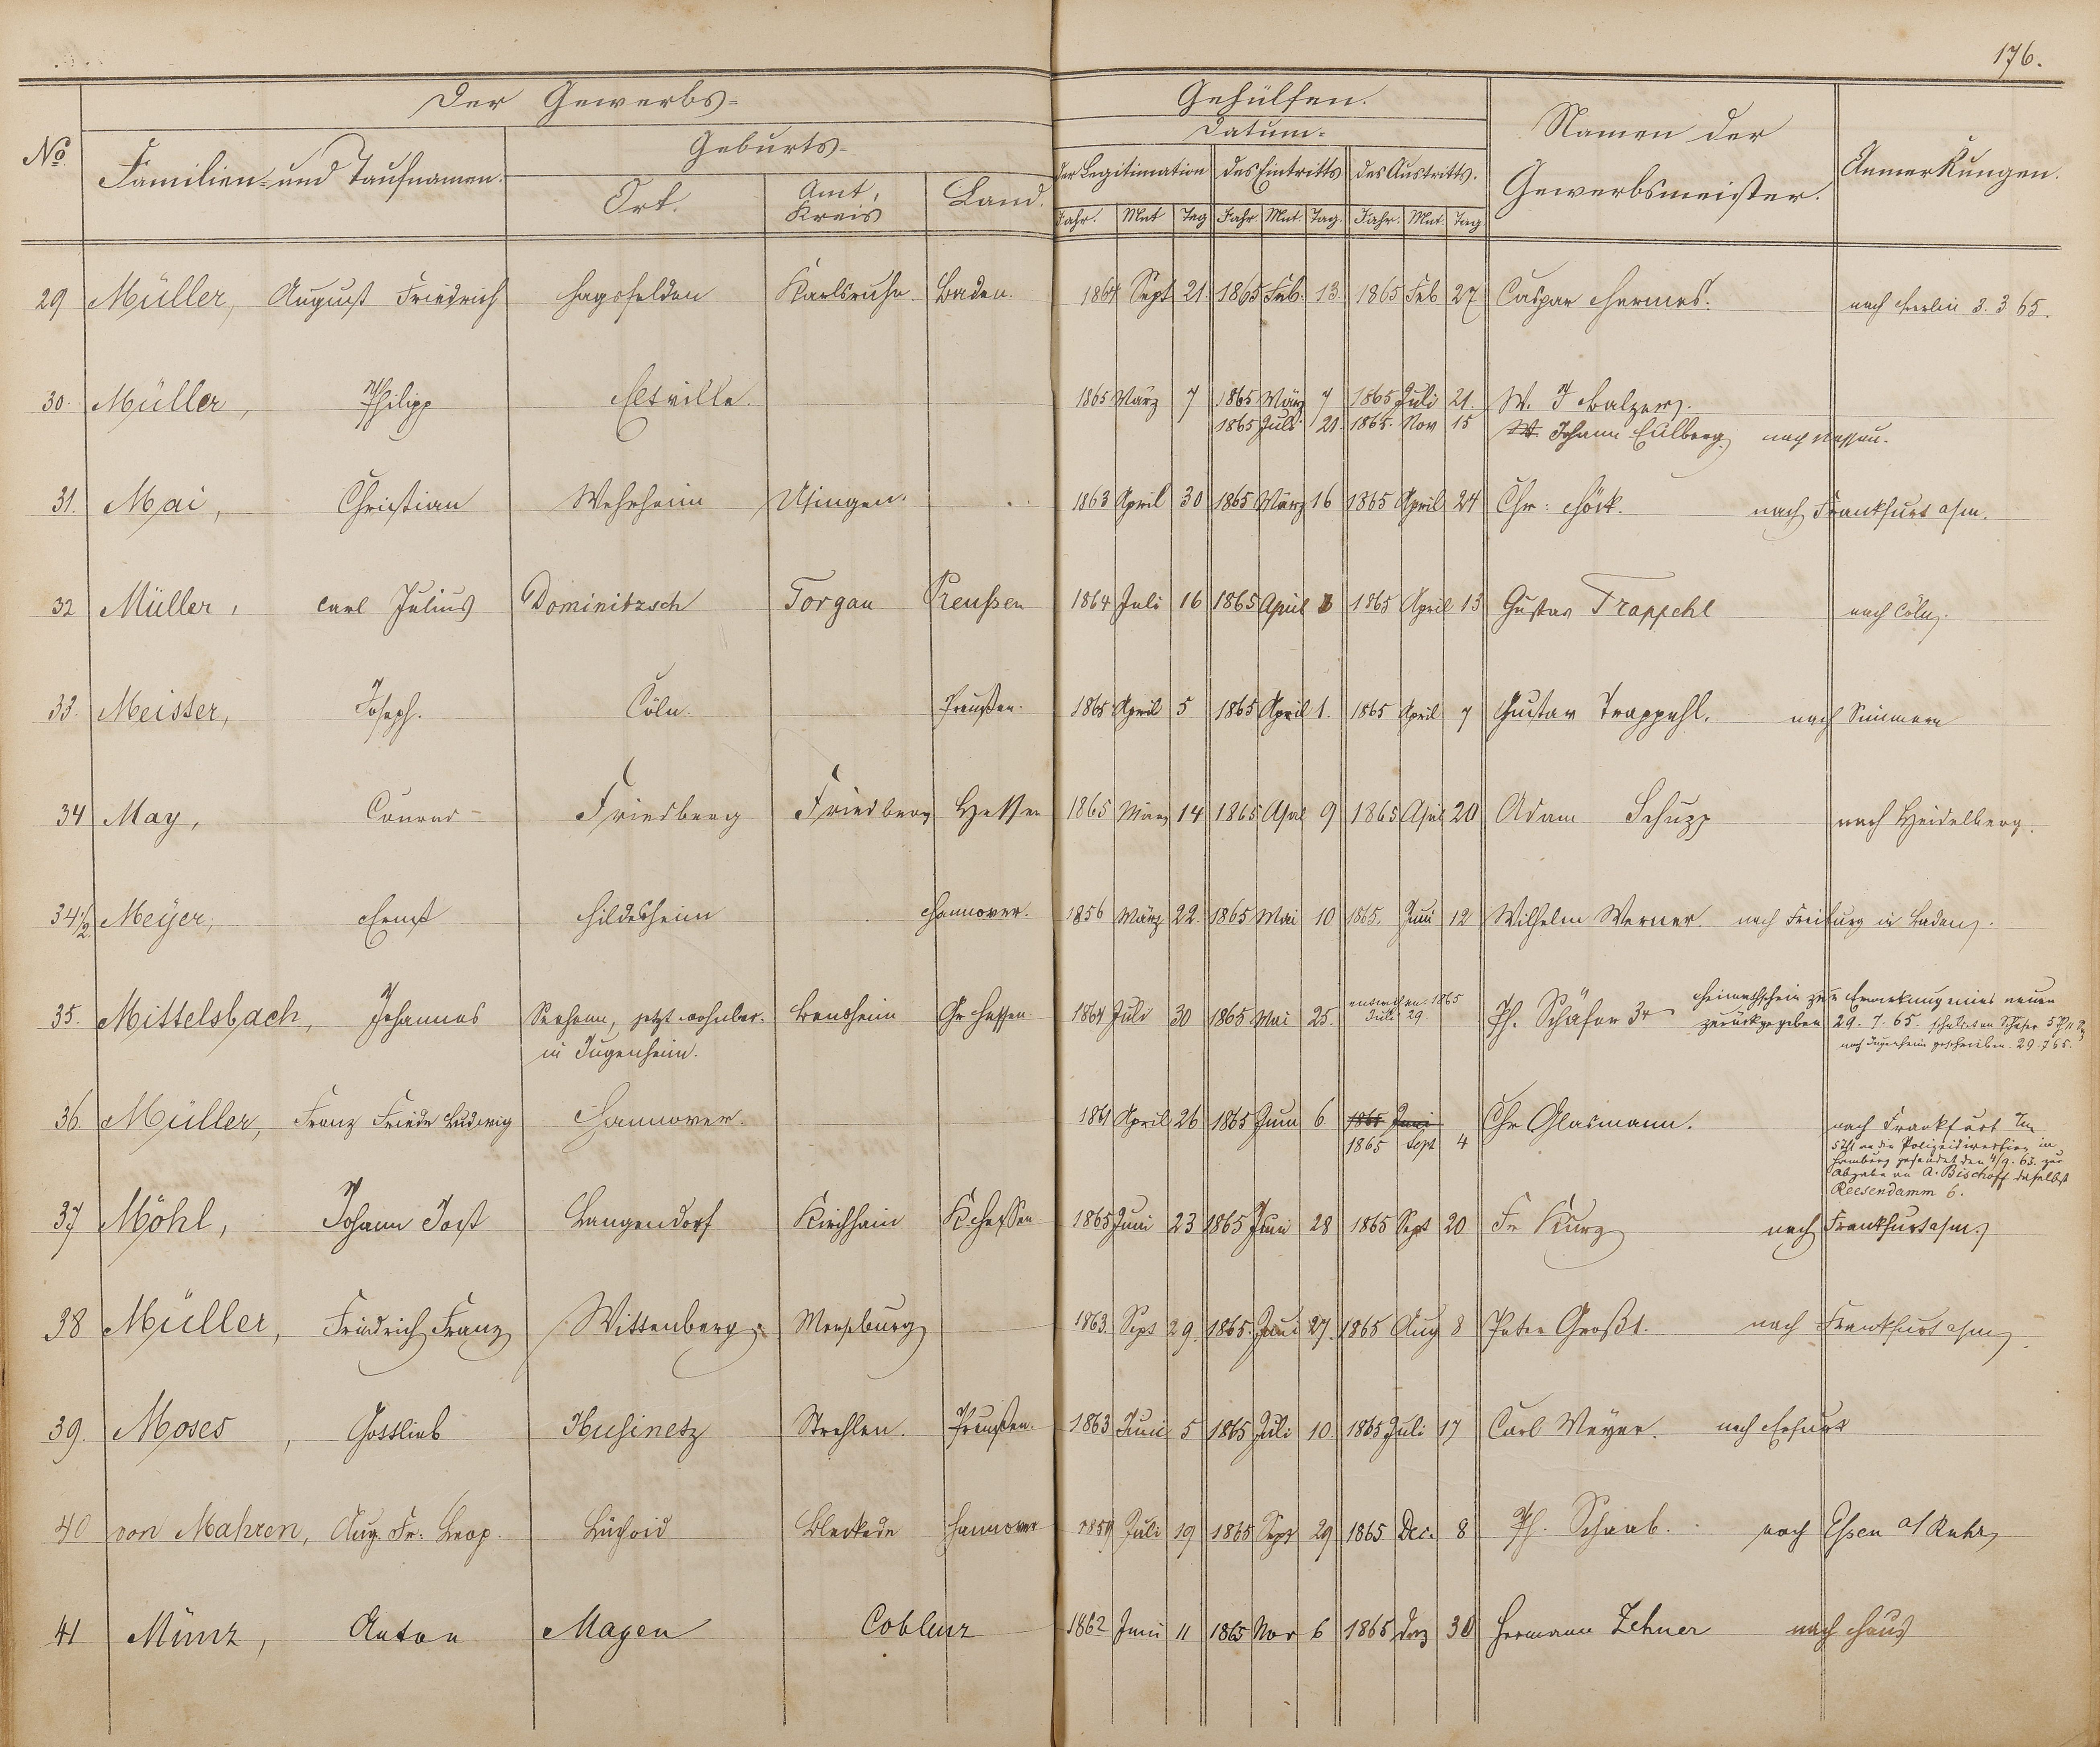 176.
Der Gewerbs-
Gehülfen.
No
Familien- und Taufnamen.
Geburts-
Ort.
Amt, Kreis
Land.
Datum-
der Legitimation
des Eintritts
des Austritts.
Jahr. Mnt Tag Jahr. Mnt. Tag. Jahr. Mnt. Tag
Namen der
Gewerbsmeister.
Anmerkungen.
29 Müller, August Friedrich Hagsfelden Karlsruhe. Baden. 1864 Sept 21. 1865 Feb. 13. 1865 Feb 27 Caspar Hermes. nach Berlin 3. 3 65.
30. Müller, Philipp Eltville. 1865 März 7 1865 März 7 1865 Juli 21. W. J Balzer.
1865 Juli 21. 1865. Nov 15 W. Johann Eulberg. nach Nassau.
31. Mai, Christian Wehrheim Usingen. 1863 April 30 1865 März 16 1865 April 24 Chr: Höck. nach Frankfurt a/m.
32 Müller, Carl Julius Dominitzsch Torgau Preußen 1864 Juli 16 1865 April 1865 April 13 Gustav Trappehl nach Cöln.
33. Meisser, Joseph. Cöln. Preußen. 1865 April 5 1865 April 1. 1865 April 7 Gustav Trappehl. nach Simmern
34 May, Conrad Friedberg Friedberg Hessen 1865 März 14 1865 April 9 1865 April 20 Adam Schupp nach Heidelberg.
34 1/2. Meÿer, Ernst Hildesheim Hannover. 1856 März 22. 1865 Mai 10 1865. Juni 12 Wilhelm Werner. nach Freiburg in Baden.
35. Mittelsbach, Johannes Seeheim, jetzt wohnbar. Bensheim Gr. Hessen. 1864 Juli 30 1865 Mai 25. entwichen. 1865 Ph. Schäfer 3r Heimathschein zur Erwirkung eines neuen
in Jugenheim. Juli 29. zurückgegeben 29. 7. 65.
nach Jugenheim geschrieben. 29. 7 65.
36. Müller, Franz Friedr Ludwig Hannover. 1861 April 26 1865 Juni 6 1865 Juni Chr Glasmann. nach Frankfurt
1865 Sept 4
an die Polizeidirection in
Hamburg gesendet den 4/9. 65. zur
Abgabe an A. Bischoff daselbst
Reesendamm 6.
37 Möhl, Johann Jost Langendorf Kirchhain K. Hessen 1865 Juni 23 1865 Juni 28 1865 Sept 20 Fr Kurz nach Frankfurt a/m.
38 Müller, Friedrich Franz Wittenberg. Merseburg 1863. Sept 29. 1865. Juni 27. 1865 Aug 8 Peter Groß 1. nach Frankfurt a/m.
39. Moses, Gottlieb Husinetz Strehlen. Preußen. 1863 Juni 5 1865 Juli 10. 1865 Juli 17 Carl Meyer. nach Erfurt
40 von Mahren, Aug. Fr: Leop. Bleckede Hannover 1859 Juli 19 1865 Sept 29 1865 Dec. 8 Ph. Schaab. nach Essen a/ Ruhr
41 Münz, Anton Mayen Coblenz 1862 Juni 11 1865 Nov 6 1865 Dez 30 Hermann Zehner nach Haus